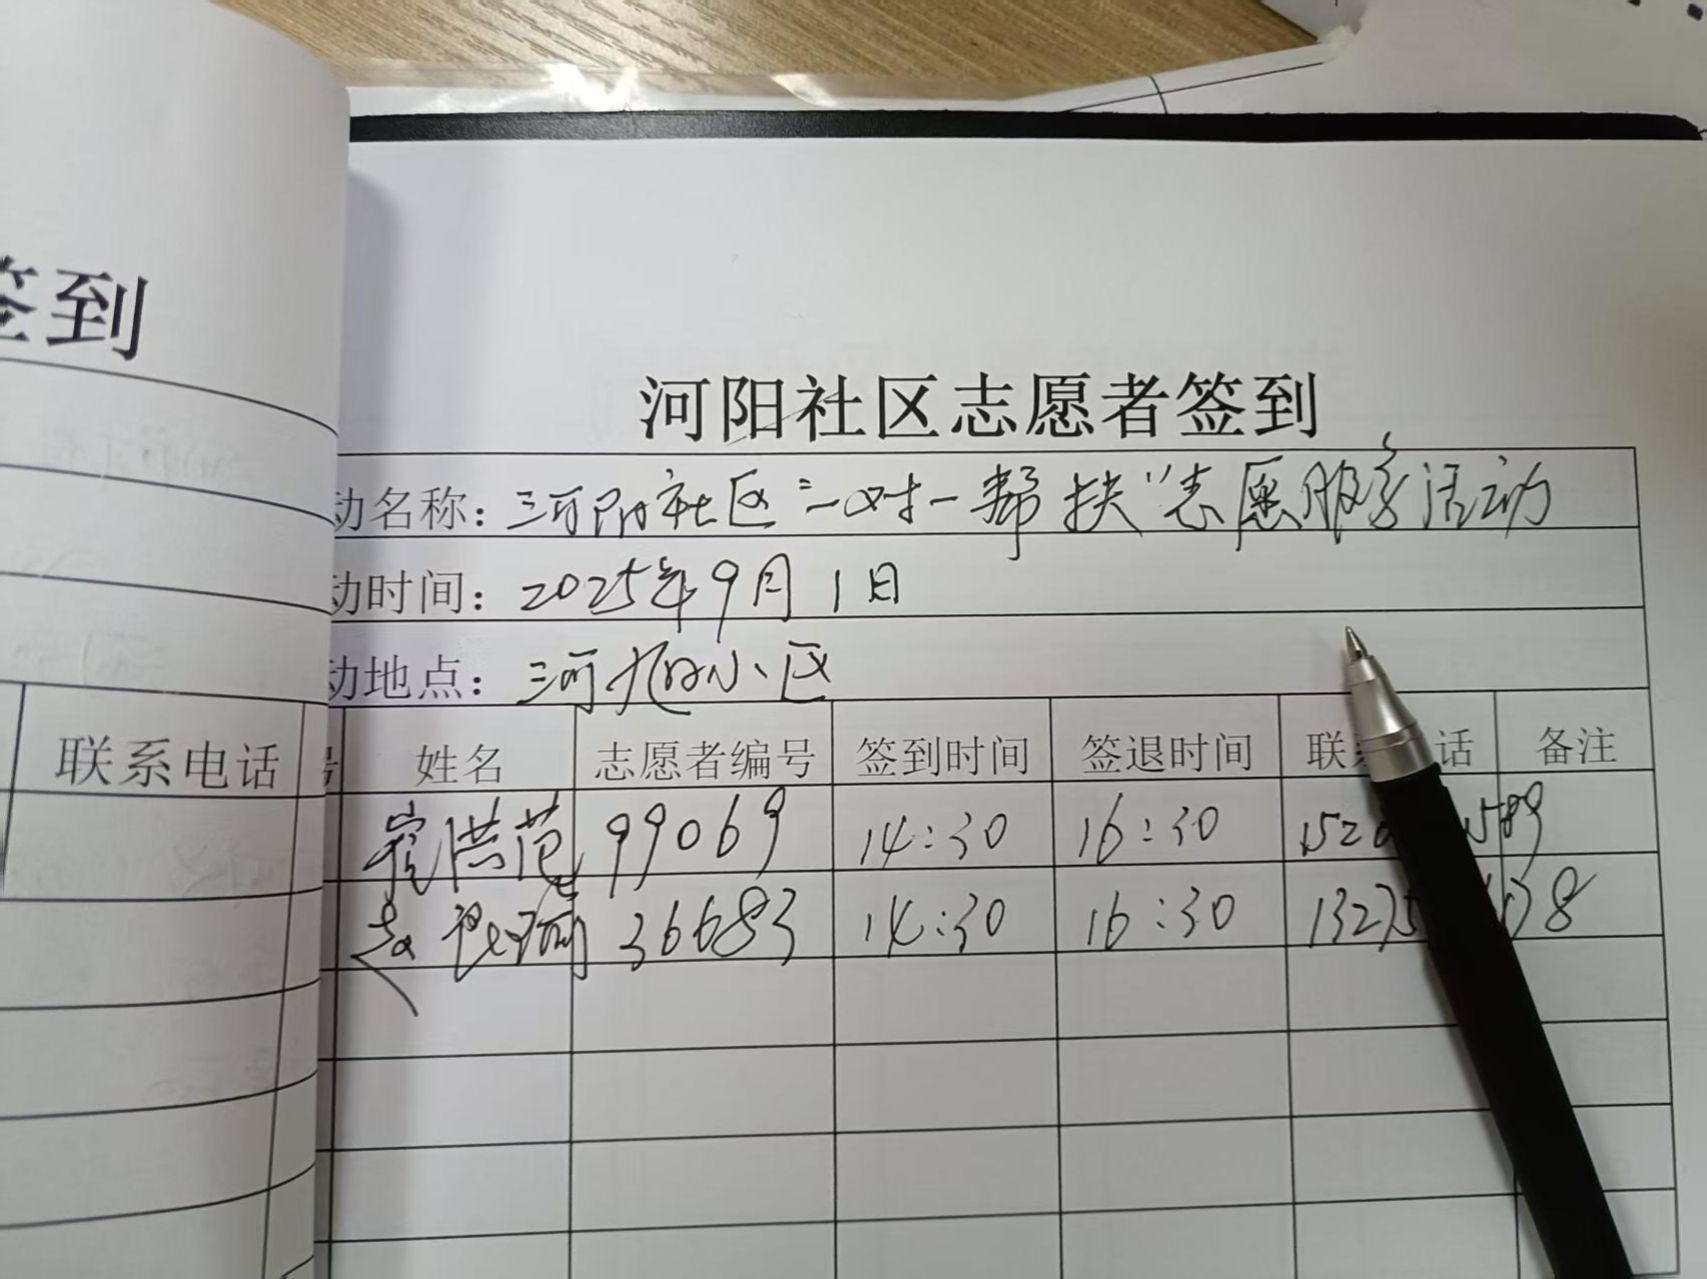 签到
联系电话
河阳社区志愿者签到
动名称：河阳社区“一对一帮扶”志愿服务活动
动时间：2025年9月1日
动地点：河阳小区
号 姓名 志愿者编号 签到时间 签退时间 联 话 备注
崔洪范 99069 14:30 16:30 152 589
赵 36683 14:30 16:30 1327 38